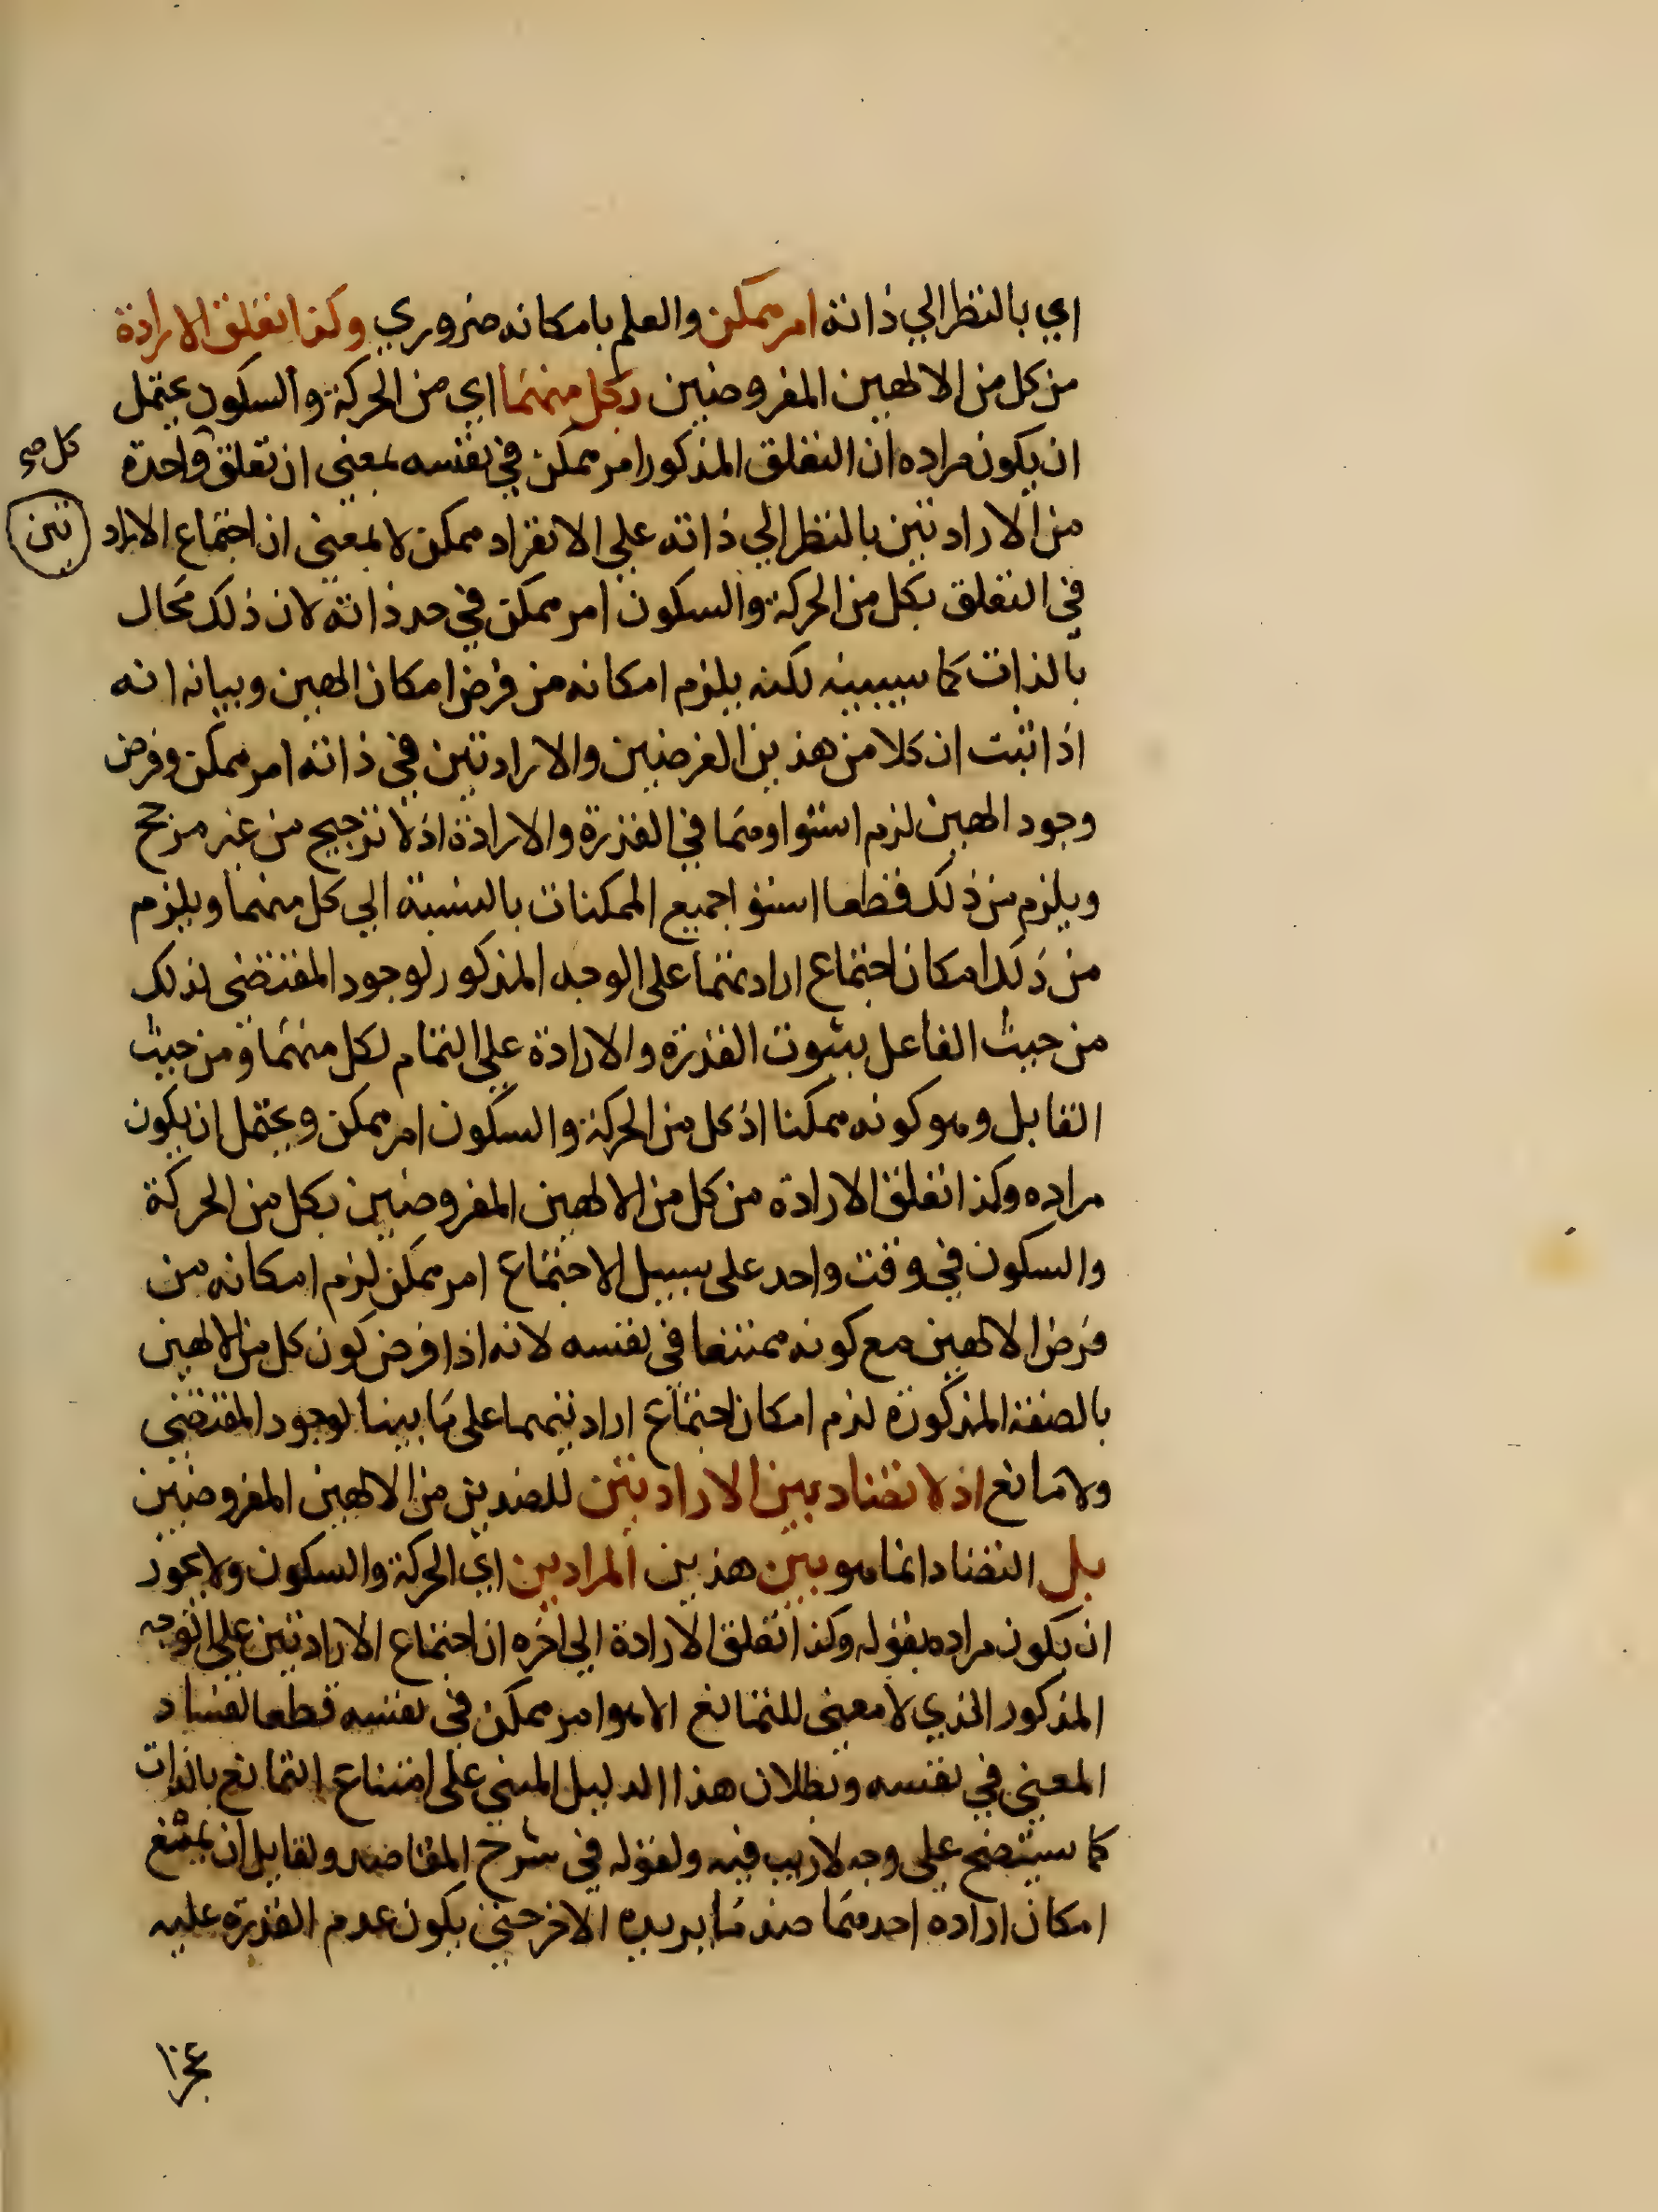 اي بالنظر الي ذاته امر ممكن والعلم بامكانه ضروري وكذا تعلق الارادة
من كل من الالهين المفروضين بكل منهما اي من الحركة والسكون يحتمل
ان يكون مراده ان التعلق المذكور امر ممكن في نفسه بمعني ان تعلق واحدة
كل صح
من الارادتين بالنظر الي ذاته علي الانفراد ممكن لا بمعني ان اجتماع الاراد
تين
في التعلق بكل من الحركة والسكون امر ممكن في حد ذاته لان ذلك محال
بالذات كما سيبينه لكنه يلزم امكانه من فرض امكان الهين وبيانه انه
اذا ثبت ان كلا من هذين الفرضين والارادتين في ذاته امر ممكن وفرض
وجود الهين لزم استواوهما في القدرة والارادة اذ لا ترجيح من غير مرجح
ويلزم من ذلك قطعا استوا جميع الممكنات بالنسبة الي كل منهما ويلزم
من ذلك امكان اجتماع ارادتهما علي الوجه المذكور لوجود المقتضي لذلك
من حيث الفاعل بثبوت القدرة والارادة علي التمام لكل منهما ومن حيث
القابل وهو كونه ممكنا اذ كل من الحركة والسكون امر ممكن ويحتمل ان يكون
مراده وكذا تعلق الارادة من كل من الالهين المفروضين بكل من الحركة
والسكون في وقت واحد علي سبيل الاجتماع امر ممكن لزم امكانه من
فرض الالهين مع كونه ممتنعا في نفسه لانه اذا فرض كون كل من الالهين
بالصفة المذكورة لزم امكان اجتماع ارادتيهما علي ما بينا لوجود المقتضي
ولا مانع اذ لا تضاد بين الارادتين للضدين من الالهين المفروضين
بل التضاد انما هو بين هذين المرادين اي الحركة والسكون ولا يجوز
ان يكون مراده بقوله وكذا تعلق الارادة الي اخره ان اجتماع الارادتين علي الوجه
المذكور الذي لا معني للتمانع الا هو امر ممكن في نفسه قطعا لفساد
المعني في نفسه وبطلان هذا الدليل المبني علي امتناع التمانع بالذات
كما سيتضح علي وجه لا ريب فيه ولقوله في شرح المقاصد ولقايل ان يمنع
امكان ارادة احدهما ضد ما يريده الاخر حتي يكون عدم القدرة عليه
عجزا